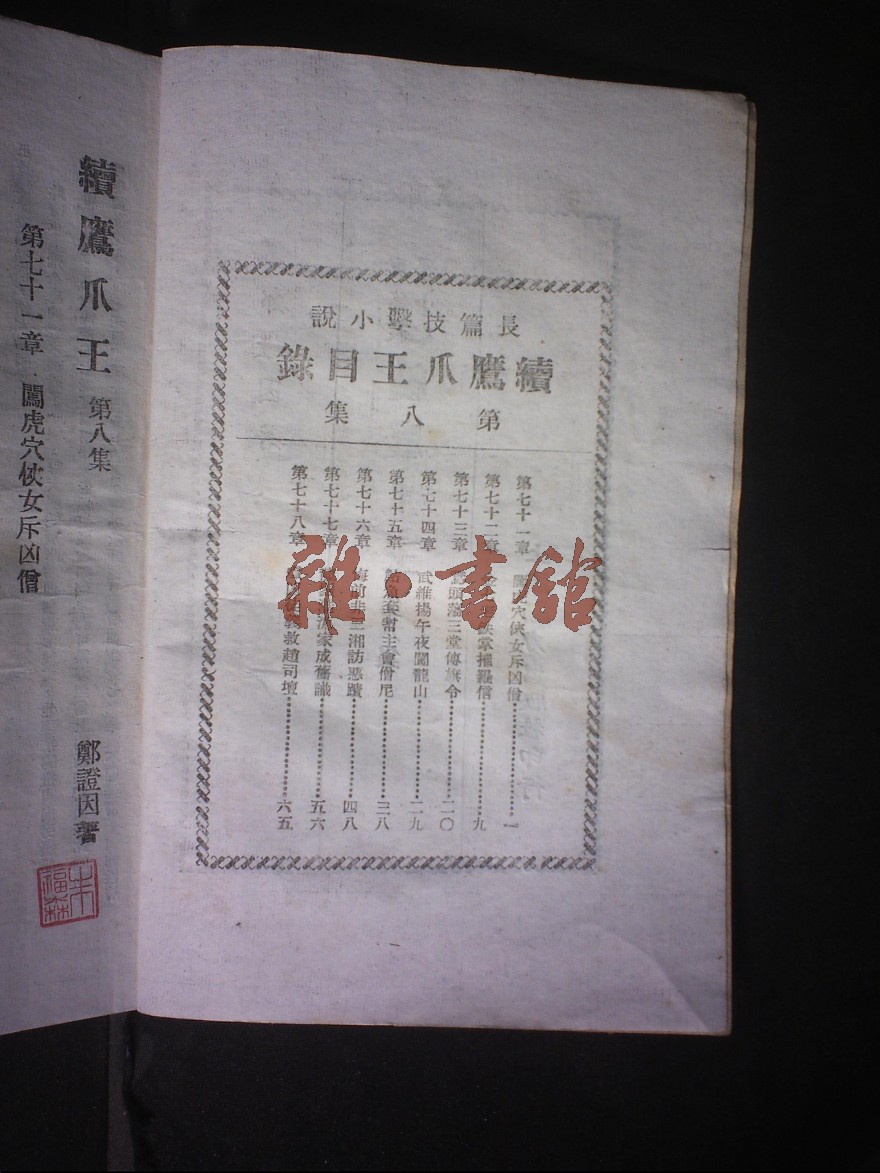 長篇技擊小說
續鷹爪王目錄
第八集
第七十一章 闖虎穴俠女斥凶僧 一
第七十二章 掌摧羅信 九
第七十三章 頭蕩三堂傳旗令 二〇
第七十四章 武維揚午夜闖龍山 二九
第七十五章 鮎魚套幫主會僧尼 三八
第七十六章 悔前非三湘訪惡蹟 四八
第七十七章 家成舊識 五六
第七十八章 救趙司壇 六五
續鷹爪王 第八集 鄭證因著
第七十一章 闖虎穴俠女斥凶僧
朱福森
雜·書館